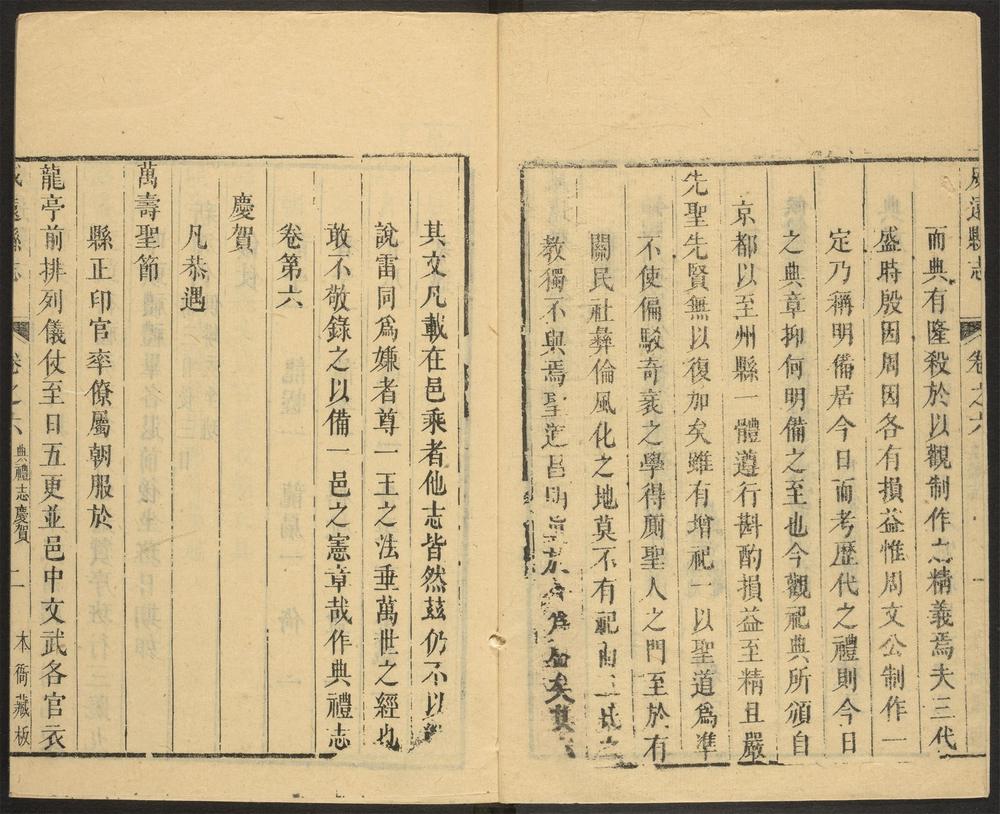 威遠縣志
卷之六
而典有隆殺於以觀制作之精義焉夫三代
盛時殷因周因各有損益惟周文公制作一
定乃稱明備居今日而考歷代之禮則今日
之典章抑何明備之至也今觀祀典所頒自
京都以至州縣一體遵行斟酌損益至精且嚴
先聖先賢無以復加矣雖有增祀一以聖道爲準
不使偏駁奇衺之學得厠聖人之門至於有
關民社彝倫風化之地莫不有祀而二氏之
教獨不與焉聖道昌明
矣其
其文凡載在邑乘者他志皆然茲仍不以
說雷同爲嫌者尊一王之法垂萬世之經也
敢不敬錄之以備一邑之憲章哉作典禮志
卷第六
慶賀
凡恭遇
萬壽聖節
縣正印官率僚屬朝服於
龍亭前排列儀仗至日五更並邑中文武各官衣
威遠縣志
卷之六
典禮志慶賀
二
本衙藏板